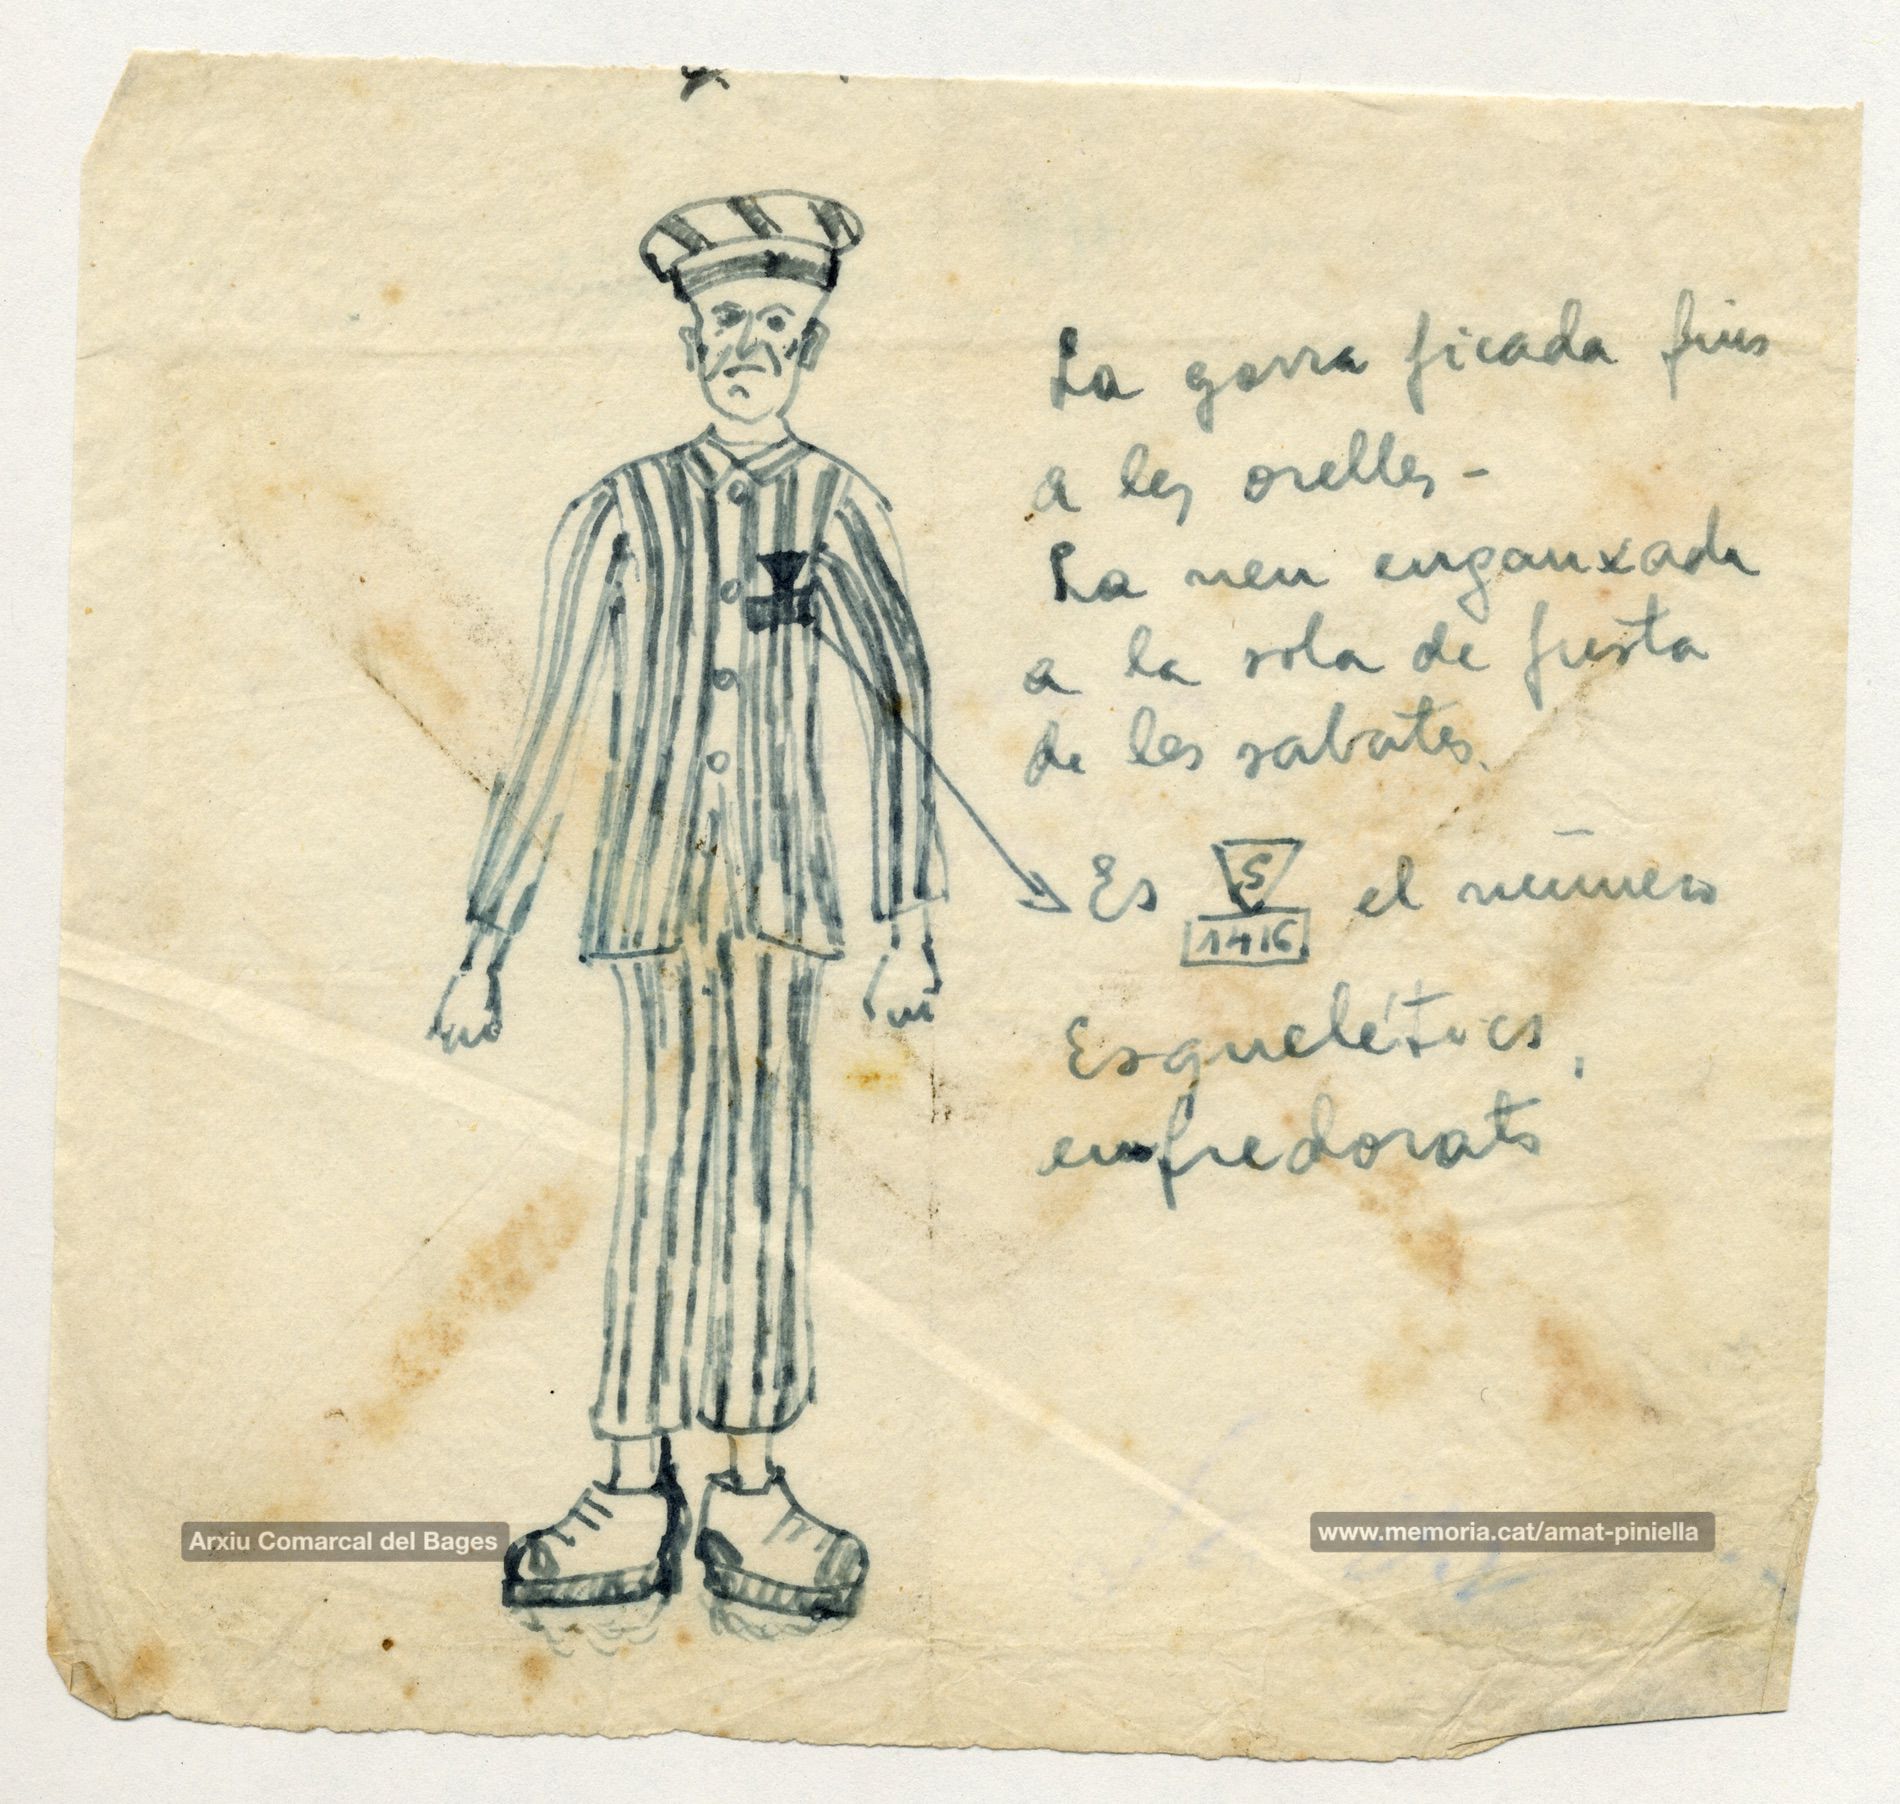 La gorra ficada fins
a les orelles -
La neu enganxada
a la sola de fusta
de les sabates.
Es S el número
1416
Esquelétics,
enfredorats
Arxiu Comarcal del Bages
www.memoria.cat/amat-piniella